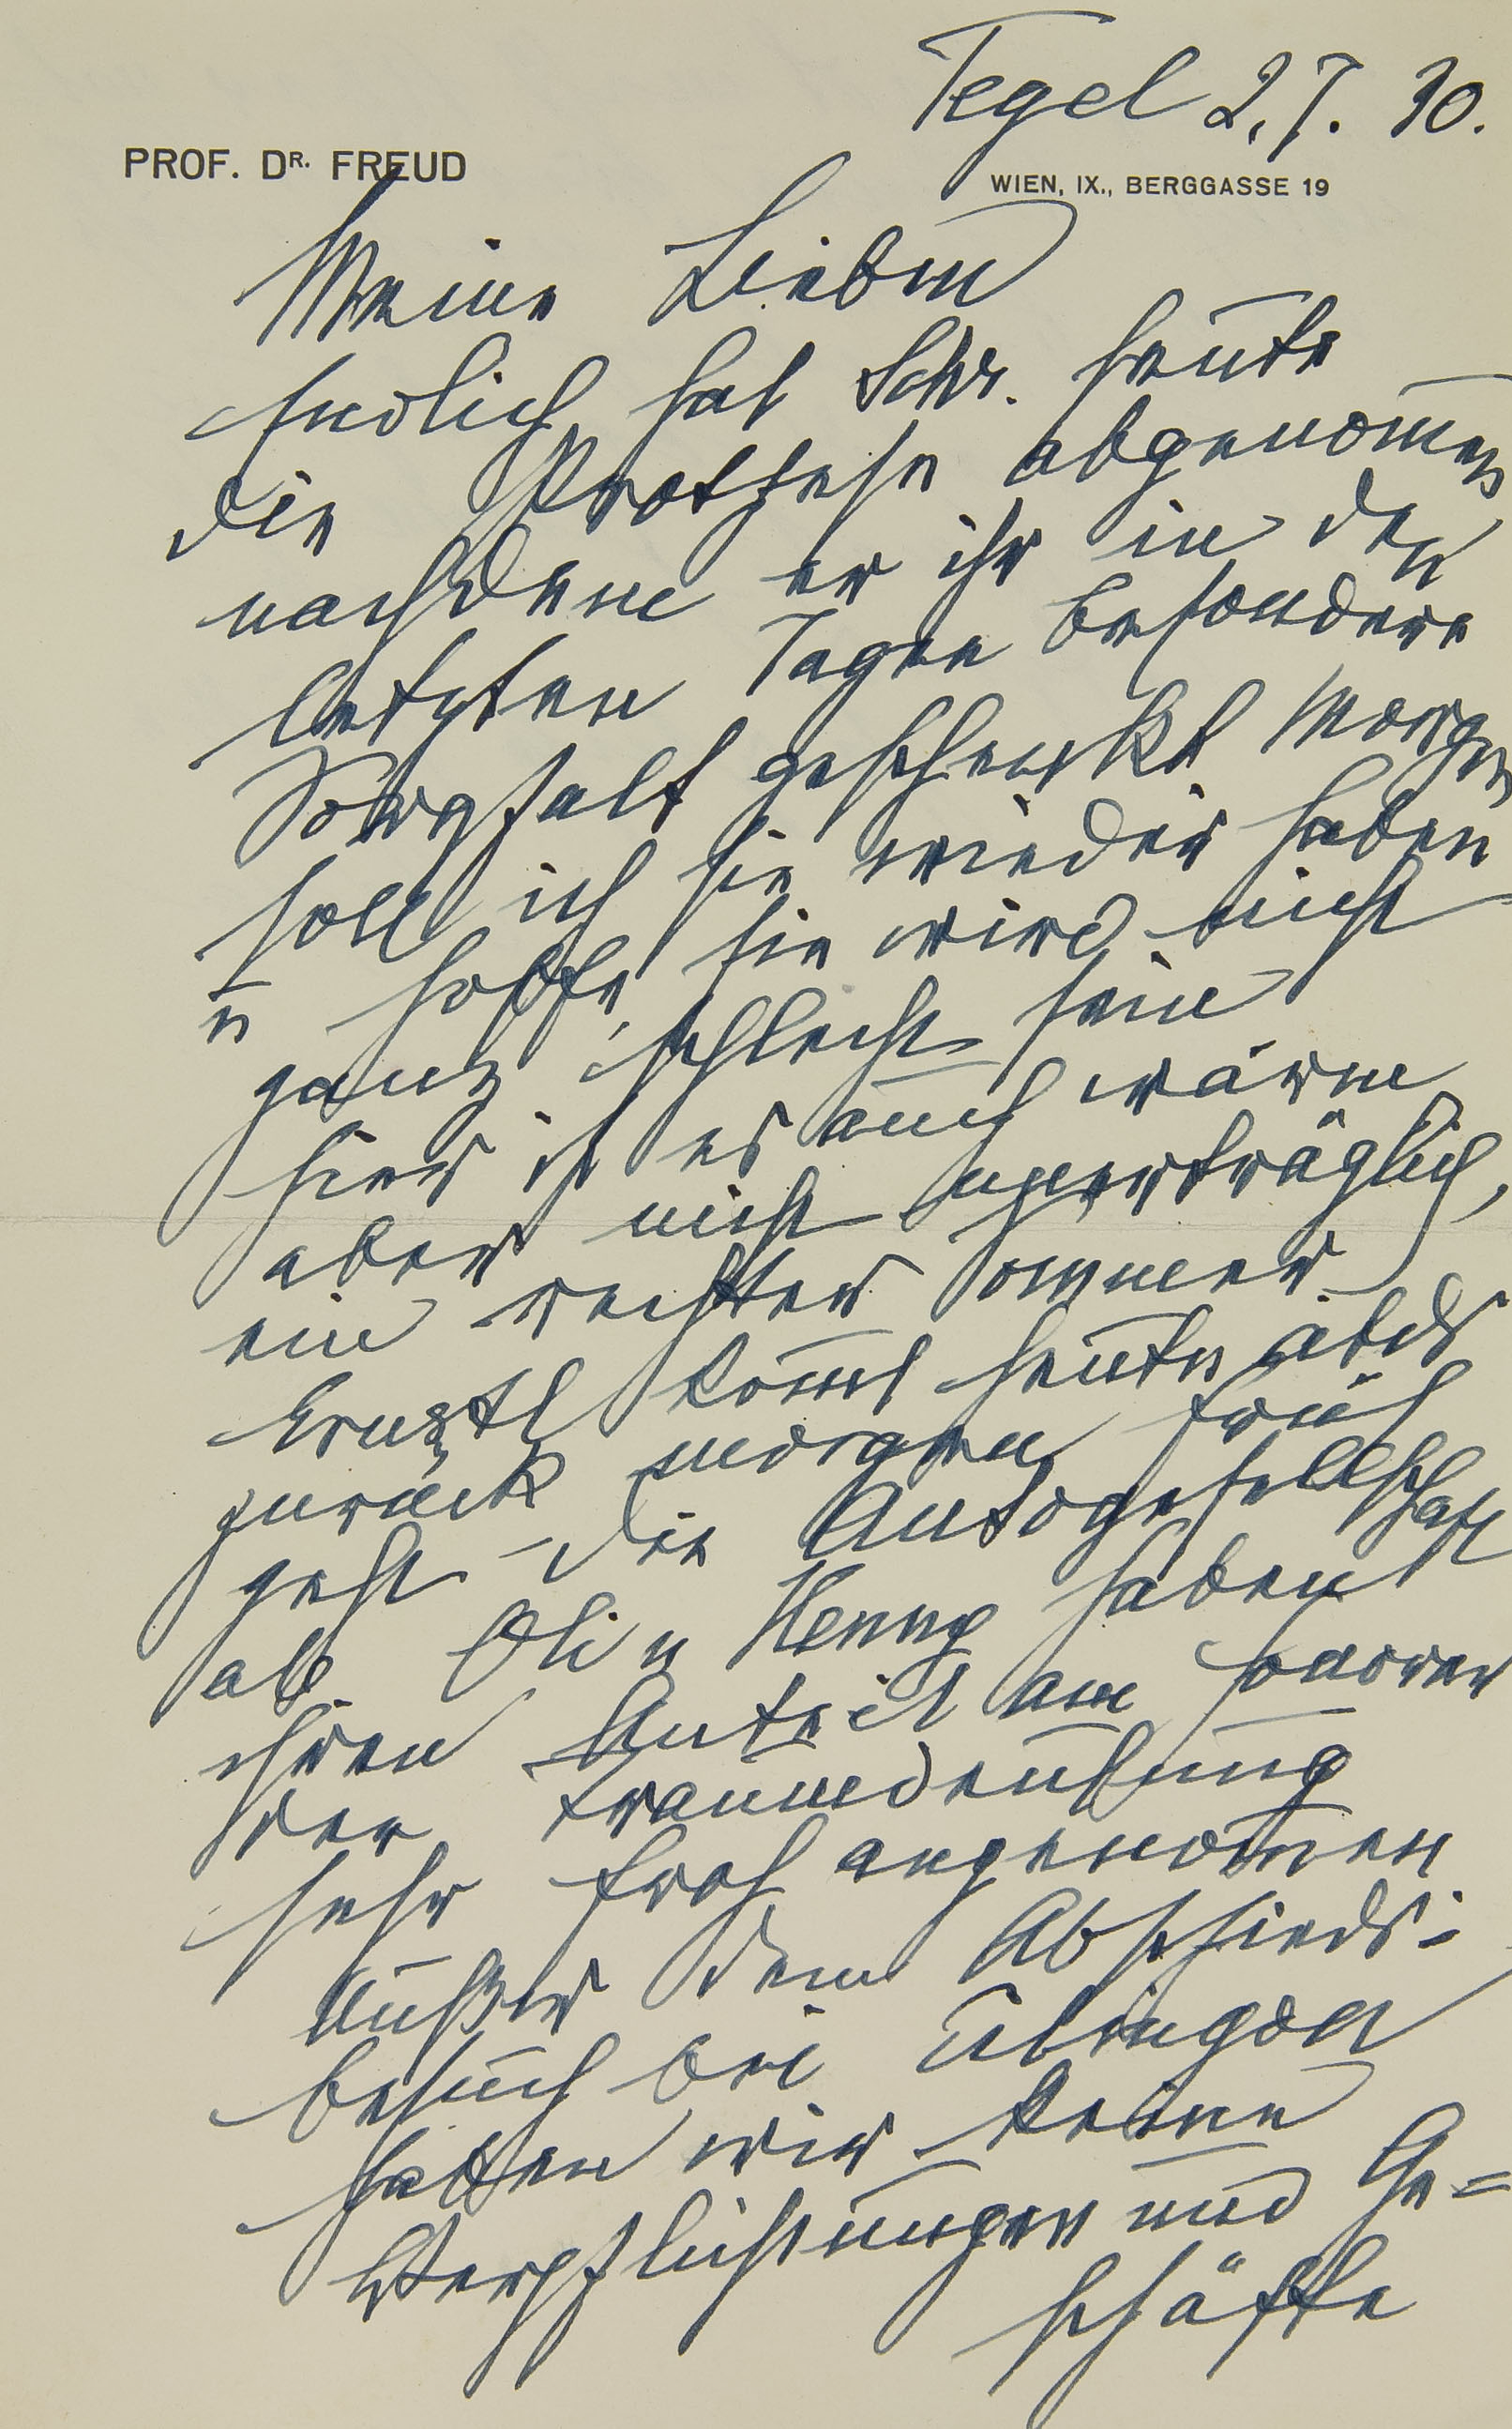 Tegel 2.7.30.
PROF. DR. FREUD
WIEN, IX., BERGGASSE 19
Meine Lieben
Endlich hat Schr. heute
die Prothese abgenom̅en
nachdem er ihr in den
letzten Tagen besondere
Sorgfalt geschenkt Morgen
soll ich sie wieder haben
u hoffe, sie wird nicht
ganz schlecht sein
hier ist es auch warm
aber nicht unerträglich,
ein rechter Sommer.
Ernstl kom̅t heute abds
zurück morgen früh
geht die Autogesellschaft
ab Oli u Henny haben
ihren Anteil am Honorar
der Traumdeutung
sehr froh angenom̅en
Außer dem Abschieds-
besuch bei
hatten wir keine
Verpflichtungen und Ge=
schäfte